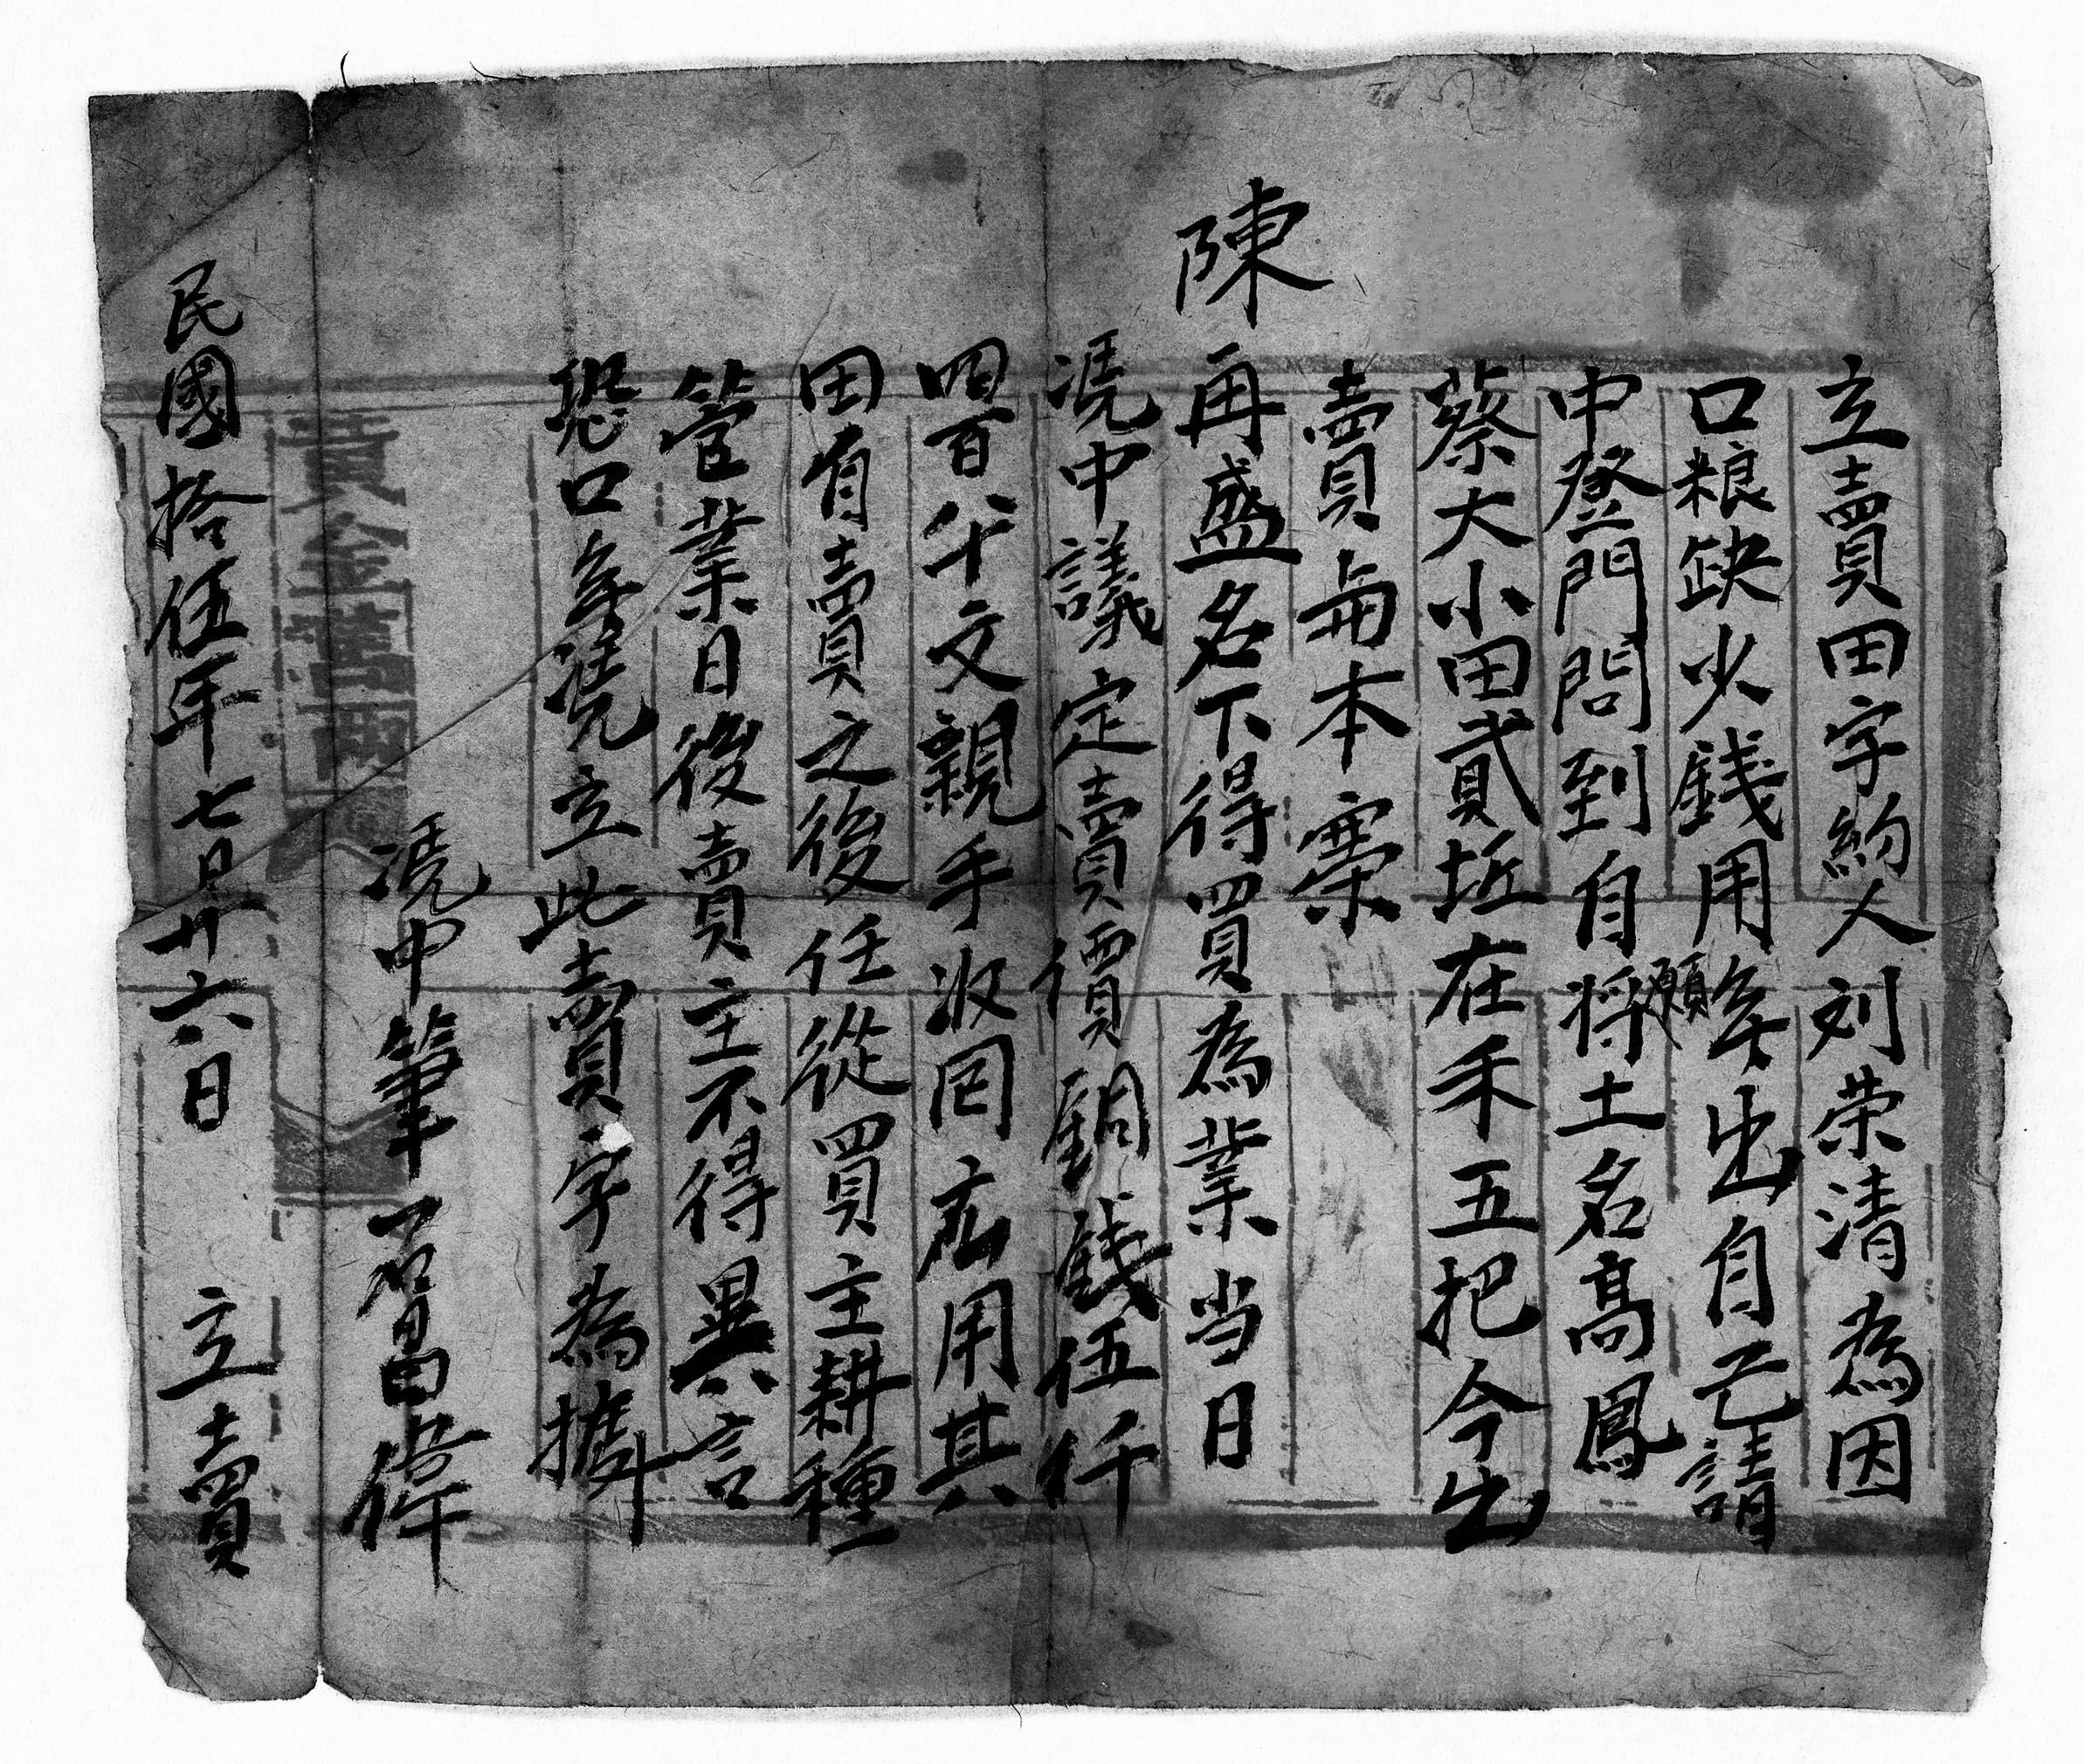 立賣田字約人刘荣清為因
口粮缺少錢用無出自己請
願
中登門問到自将土名高鳳
蔡大小田貳坵在禾五把今出
賣與本寨
陳再盛名下得買為業当日
凴中議定賣價銅錢伍仟
四百八十文親手收回应用其
田自賣之後任從買主耕種
管業日後賣主不得異言
恐口無凴立此賣字為據
凴中筆石昌偉
黃金萬兩
民國拾伍年七月廿六日 立賣